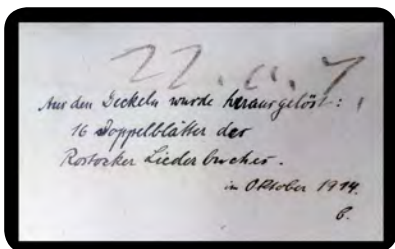 Aus den Deckeln wurde herausgelöst:
16 Doppelblätter des
Rostocker Liederbuches.
im Oktober 1914.